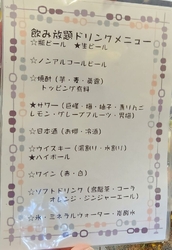 飲み放題ドリンクメニュー
☆瓶ビール ★生ビール
☆ノンアルコールビール
☆焼酎(芋・麦・
トッピング有料
★サワー(巨峰・梅・柚子・青りんご
レモン・グレープフルーツ・
☆日本酒(お燗・冷酒)
☆ウイスキー(湯割り・水割り)
★ハイボール
☆ワイン(赤・白)
☆ソフトドリンク(烏龍茶・コーラ
オレンジ・ジンジャーエール)
☆氷・ミネラルウォーター・炭酸水